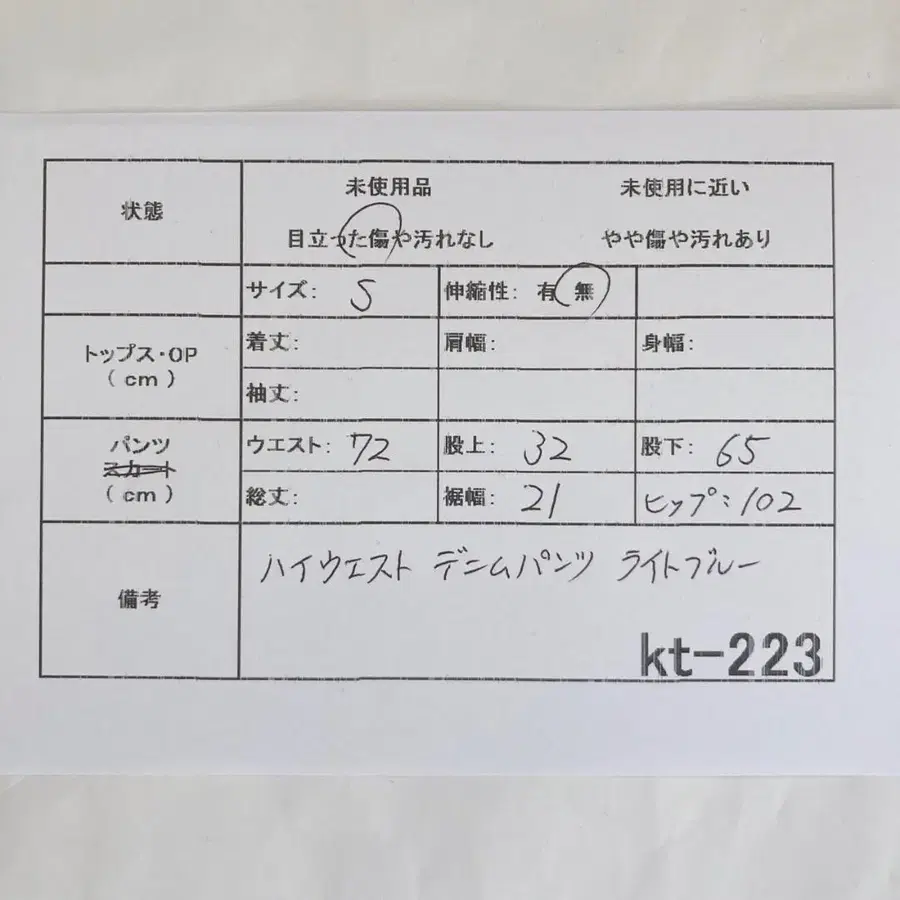 状態
未使用品 未使用に近い
目立った傷や汚れなし やや傷や汚れあり
サイズ: S 伸縮性: 有 無
トップス・OP
(cm)
着丈: 肩幅: 身幅:
袖丈:
パンツ
スカート
(cm)
ウエスト: 72 股上: 32 股下: 65
総丈: 裾幅: 21 ヒップ: 102
備考
ハイウエスト デニムパンツ ライトブルー
kt-223